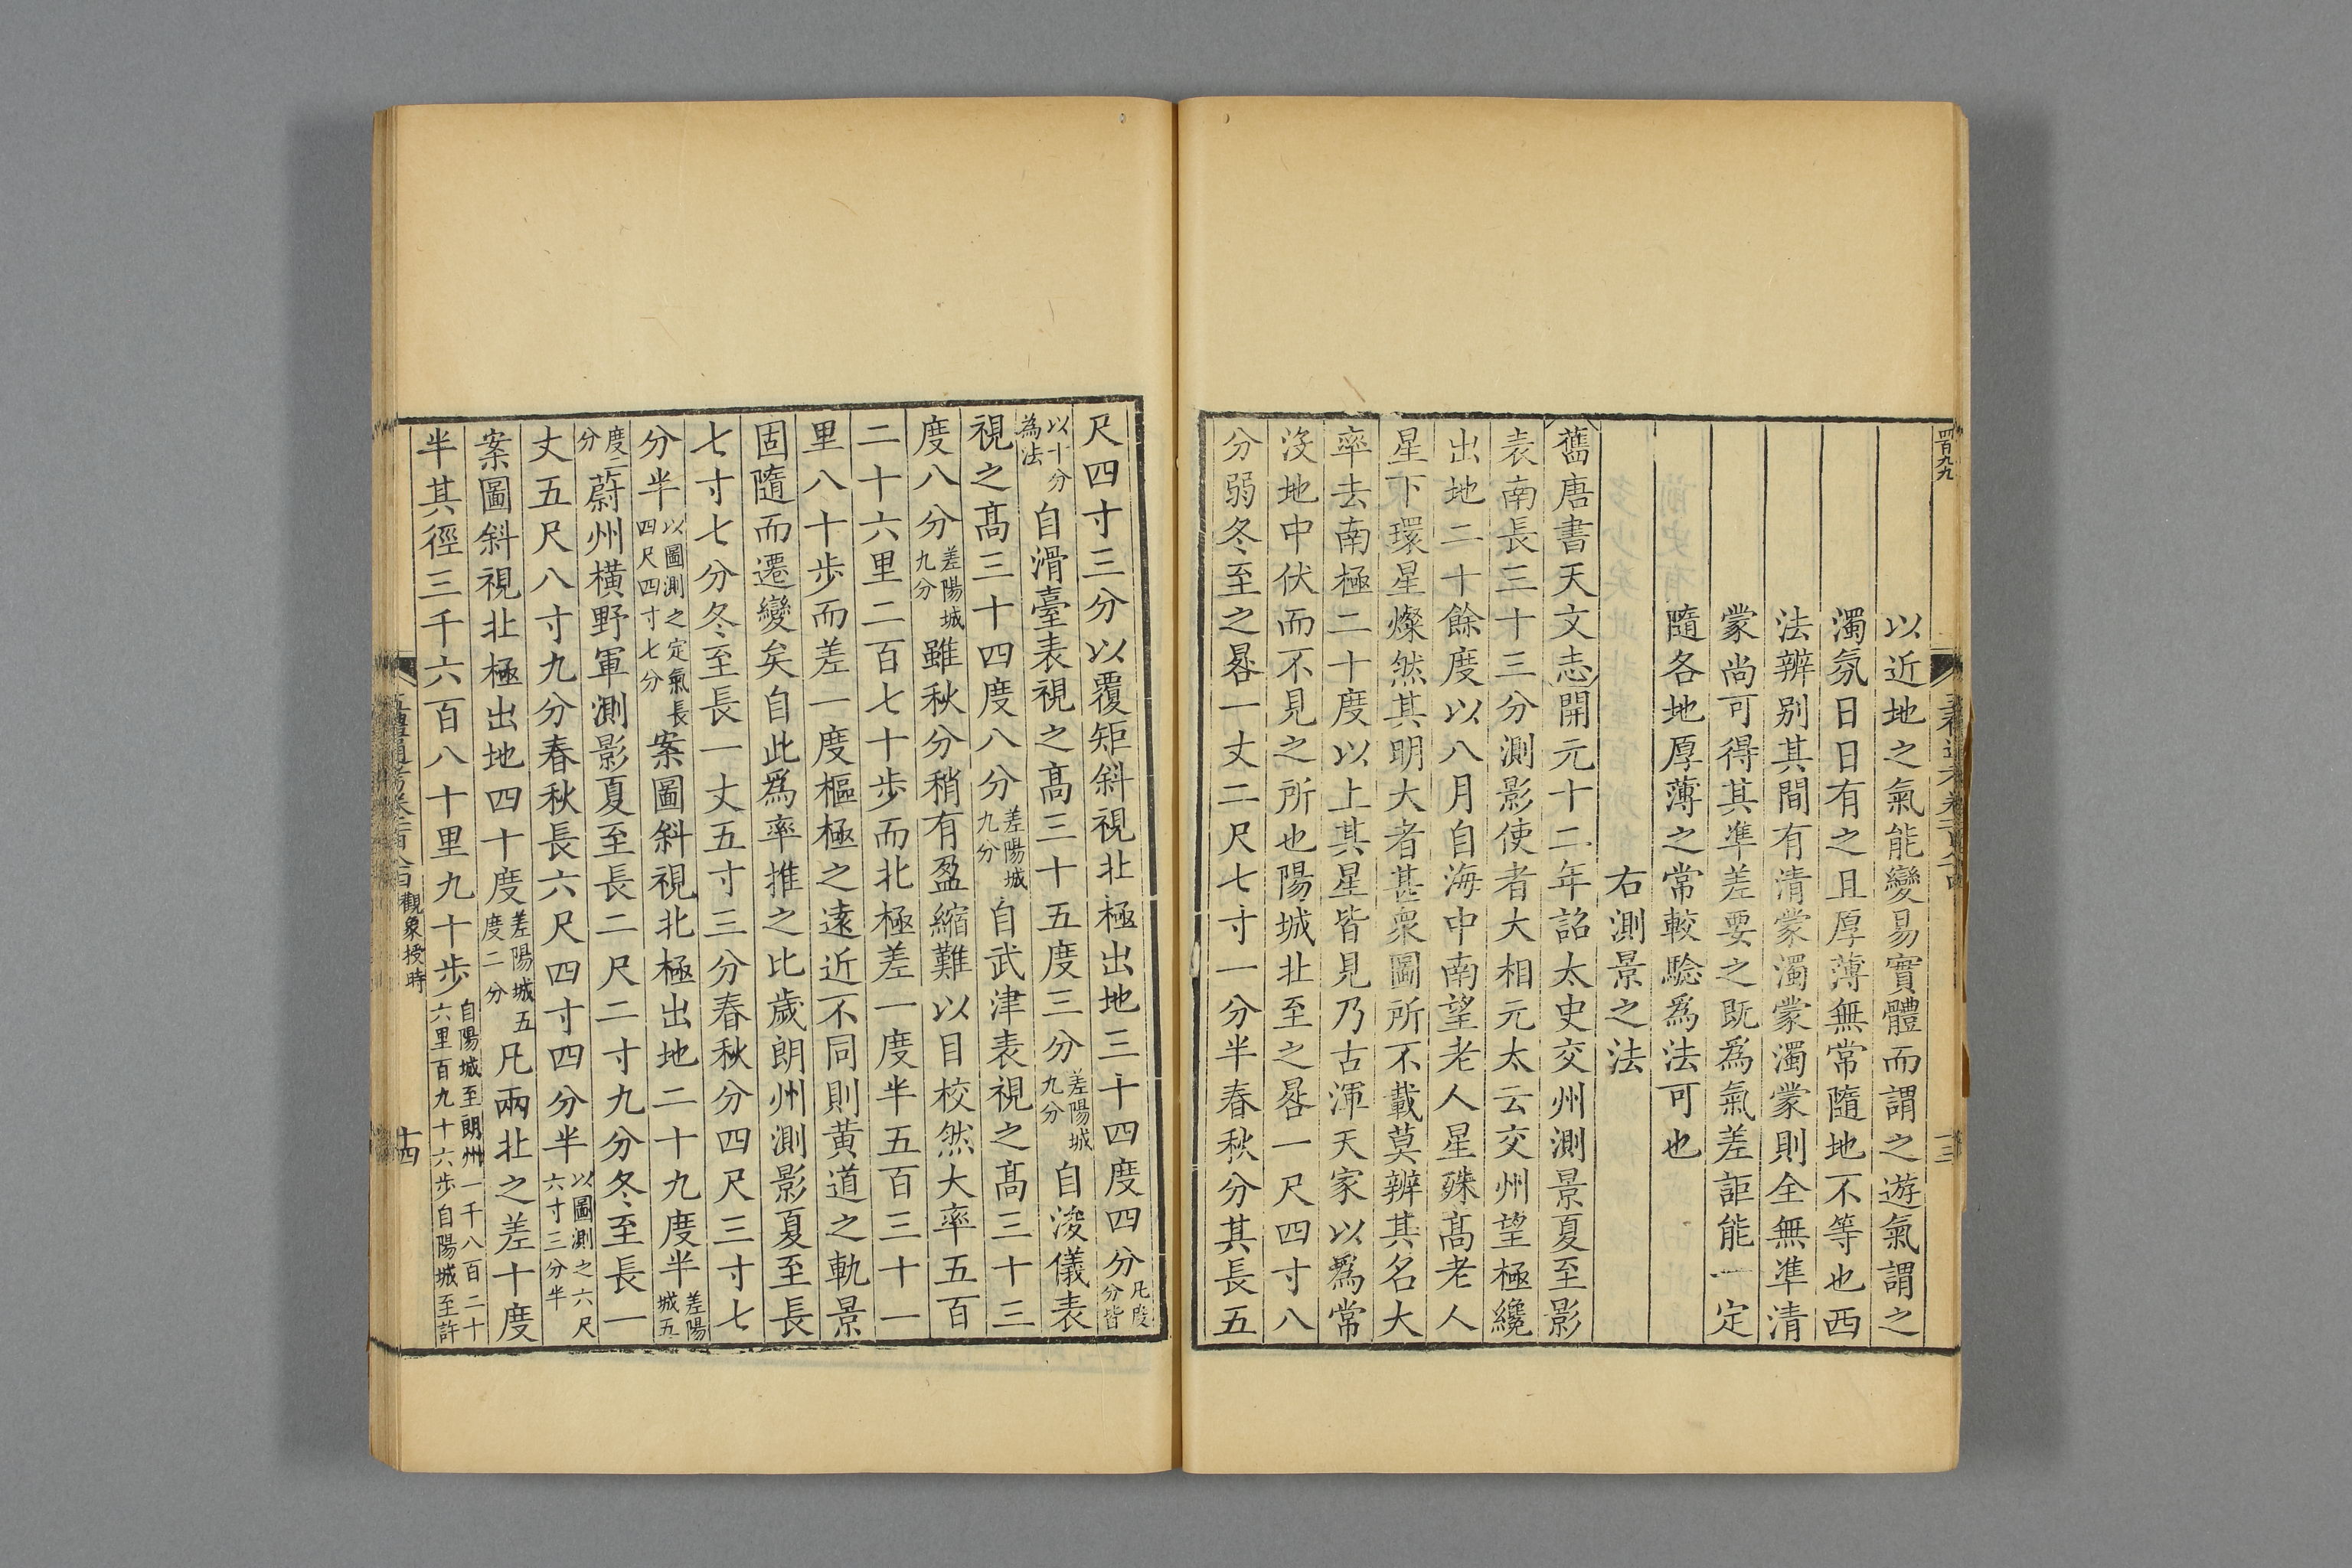 四百九九
以近地之氣能變易實體而謂之遊氣謂之
濁氛日日有之且厚薄無常隨地不等也西
法辨别其間有清蒙濁蒙濁蒙則全無凖清
蒙尚可得其凖差要之既爲氣差詎能一定
隨各地厚薄之常較騐爲法可也
右測景之法
舊唐書天文志開元十二年詔太史交州測景夏至影
表南長三十三分測影使者大相元太云交州望極纔
出地二十餘度以八月自海中南望老人星殊髙老人
星下環星燦然其明大者甚衆圖所不載莫辨其名大
率去南極二十度以上其星皆見乃古渾天家以爲常
沒地中伏而不見之所也陽城北至之晷一尺四寸八
分弱冬至之晷一丈二尺七寸一分半春秋分其長五
尺四寸三分以覆矩斜視北極出地三十四度四分凡度分皆
以十分爲法自滑臺表視之髙三十五度三分差陽城九分自浚儀表
視之髙三十四度八分差陽城九分自武津表視之髙三十三
度八分差陽城九分雖秋分稍有盈縮難以目校然大率五百
二十六里二百七十步而北極差一度半五百三十一
里八十步而差一度樞極之逺近不同則黄道之軌景
固隨而遷變矣自此爲率推之比歲朗州測影夏至長
七寸七分冬至長一丈五寸三分春秋分四尺三寸七
分半以圖測之定氣長四尺四寸七分案圖斜視北極出地二十九度半差陽城五
度二分蔚州横野軍測影夏至長二尺二寸九分冬至長一
丈五尺八寸九分春秋長六尺四寸四分半以圖測之六尺六寸三分半
案圖斜視北極出地四十度差陽城五度二分凡兩北之差十度
半其徑三千六百八十里九十步自陽城至朗州一千八百二十六里百九十六步自陽城至許
觀象授時
十四